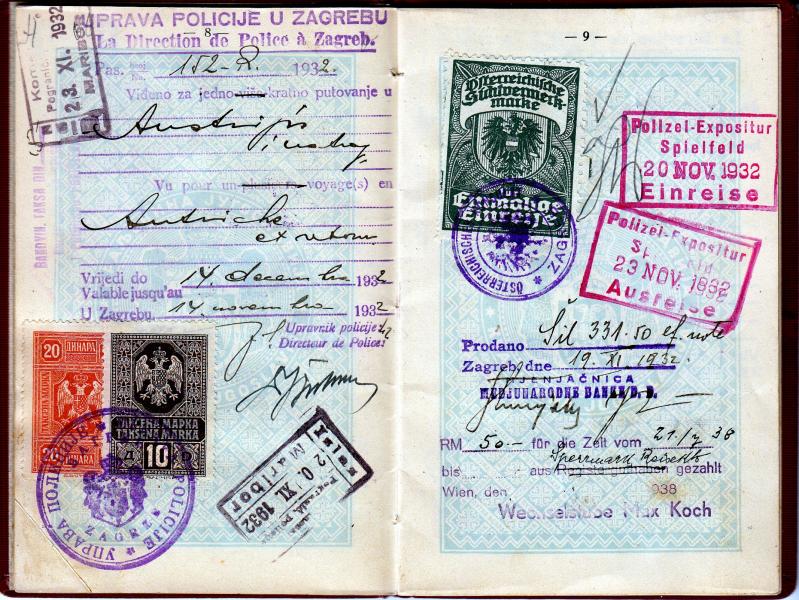 UPRAVA POLICIJE U ZAGREBU
— 8 —
La Direction de Police à Zagreb.
Pas. Broj No. 152-R. 1932
Viđeno za jedno-više-kratno putovanje u
Austriju
i natrag
Vu pour un-plusieurs-voyage(s) en
Autriche
et retour
Vrijedi do
Valable jusqu'au
14. decembra 1932
U Zagrebu,
14. novembra 1932
Upravnik policije:
Directeur de Police:
23. XI. 1932
MARIBOR
BANOVIN. TAKSA DIN.
20 ДИНАРА
ТАКСЕНА МАРКА
20 DINARA
ТАКСЕНА МАРКА
TAKSENA MARKA
Д 10 D
УПРАВА ПОЛИЦИЈЕ
POLICIJE
ZAGREB
Maribor
20. XI. 1932
— 9 —
Österreichische
Sichtvermerk-
marke
für
Einmalige
Einreise
ÖSTERREICHISCHE
ZAGREB
Polizei-Expositur
Spielfeld
20 NOV. 1932
Einreise
Polizei-Expositur
Spielfeld
23 NOV. 1932
Ausreise
Prodano Šil 331.50 ef. note
Zagreb dne 19. XI. 1932.
MJENJAČNICA
MEDJUNARODNE BANKE D. D.
RM 50.— für die Zeit vom 21/ 38
bis aus Registerguthaben gezahlt
Wien, den 1938
Wechselstube Max Koch